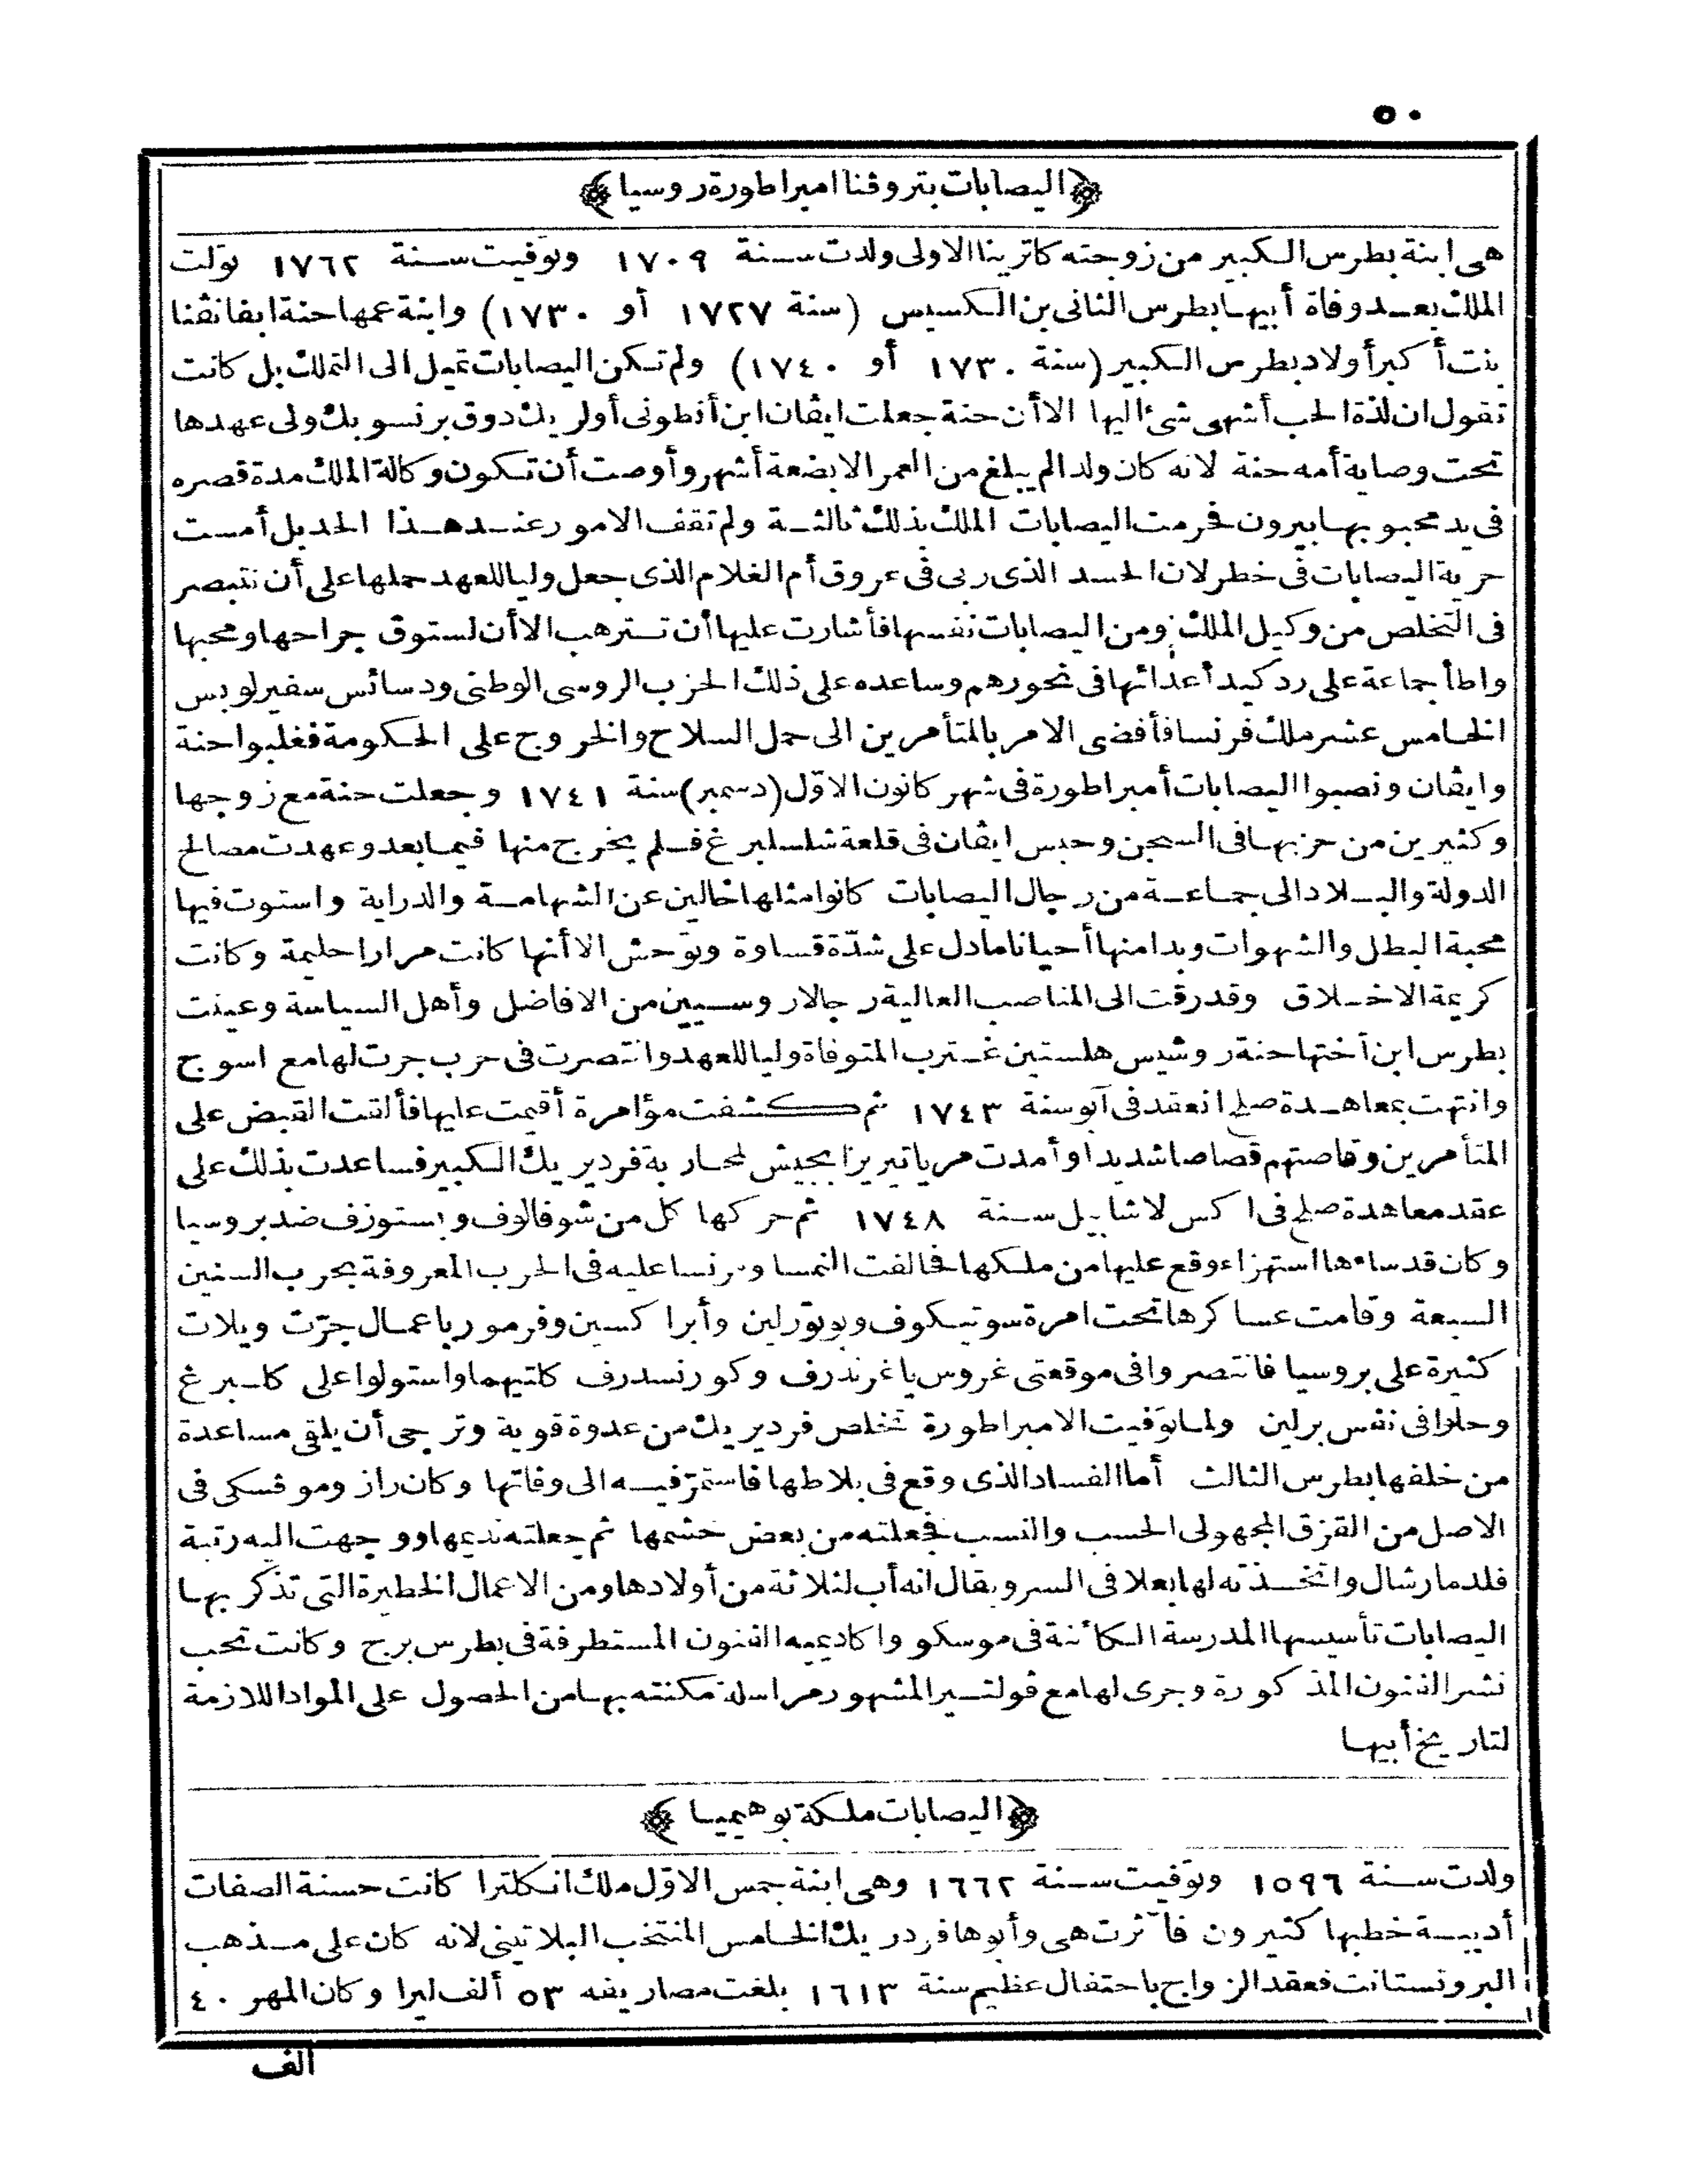 ٥٠
﴿اليصابات بتروڤنا امبراطورة روسيا﴾
هى ابنة بطرس الكبير من زوجته كاترينا الاولى ولدت سنة ١٧٠٩ وتوفيت سنة ١٧٦٢ تولت
الملك بعد وفاة أبيها بطرس الثانى بن الكسيس (سنة ١٧٢٧ أو ١٧٣٠) وابنة عمها حنة ايفانڤنا
بنت أكبر أولاد بطرس الكبير (سنة ١٧٣٠ أو ١٧٤٠) ولم تكن اليصابات تميل الى التملك بل كانت
تقول ان لذة الحب أشهى شئ اليها الا أن حنة جعلت ايڤان ابن أنطونى أولريك دوق برنسويك ولى عهدها
تحت وصاية أمه حنة لانه كان ولدا لم يبلغ من العمر الا بضعة أشهر وأوصت أن تكون وكالة الملك مدة قصره
فى يد محبوبها بيرون فحرمت اليصابات الملك بذلك ثالثة ولم تقف الامور عند هذا الحد بل أمست
حرية اليصابات فى خطر لان الحسد الذى ربى فى عروق أم الغلام الذى جعل وليا للعهد حملها على أن تتبصر
فى التخلص من وكيل الملك ومن اليصابات نفسها فأشارت عليها أن تترهب الا أن لستوق جراحها ومحبها
واطأ جماعة على رد كيد أعدائها فى نحورهم وساعده على ذلك الحزب الروسى الوطنى ودسائس سفير لويس
الخامس عشر ملك فرنسا فأفضى الامر بالمتأمرين الى حمل السلاح والخروج على الحكومة فغلبوا حنة
وايڤان ونصبوا اليصابات أمبراطورة فى شهر كانون الاوّل (دسمبر) سنة ١٧٤١ وجعلت حنة مع زوجها
وكثيرين من حزبها فى السجن وحبس ايڤان فى قلعة شلسلبرغ فلم يخرج منها فيما بعد وعهدت مصالح
الدولة والبلاد الى جماعة من رجال اليصابات كانوا مثلها خالين عن الشهامة والدراية واستوت فيها
محبة البطل والشهوات وبدا منها أحيانا ما دل على شدّة قساوة وتوحش الا أنها كانت مرارا حليمة وكانت
كريمة الاخلاق وقد رقت الى المناصب العالية رجالا روسيين من الافاضل وأهل السياسة وعينت
بطرس ابن أختها حنة روشيس هلستين غترب المتوفاة وليا للعهد وانتصرت فى حرب جرت لها مع اسوج
وانتهت بمعاهدة صلح انعقد فى آبو سنة ١٧٤٣ ثم كشفت مؤامرة أقيمت عليها فألقت القبض على
المتأمرين وقاصتهم قصاصا شديدا وأمدت مريا تيريزا بجيش لمحاربة فرديريك الكبير فساعدت بذلك على
عقد معاهدة صلح فى اكس لاشابيل سنة ١٧٤٨ ثم حركها كل من شوفالوف وبستوزف ضد بروسيا
وكان قد ساءها استهزاء وقع عليها من ملكها فحالفت النمسا وفرنسا عليه فى الحرب المعروفة بحرب السنين
السبعة وقامت عساكرها تحت امرة سوتيكوف وبوتورلين وأبراكسين وفرمور باعمال جرّت ويلات
كثيرة على بروسيا فانتصروا فى موقعتى غروس ياغرندرف وكورنسدرف كلتيهما واستولوا على كلسبرغ
وحلوا فى نفس برلين ولما توفيت الامبراطورة تخلص فرديريك من عدوة قوية وترجى أن يلقى مساعدة
من خلفها بطرس الثالث أما الفساد الذى وقع فى بلاطها فاستمرّ فيه الى وفاتها وكان رازوموڤسكى فى
الاصل من القزق المجهولى الحسب والنسب فجعلته من بعض حشمها ثم جعلته نديمها ووجهت اليه رتبة
فلد مارشال واتخذته لها بعلا فى السر ويقال انه أب لثلاثة من أولادها ومن الاعمال الخطيرة التى تذكر بها
اليصابات تأسيسها المدرسة الكائنة فى موسكو واكاديميه الفنون المستظرفة فى بطرس برج وكانت تحب
نشر الفنون المذكورة وجرى لها مع ڤولتير المشهور مراسلة مكنته بها من الحصول على المواد اللازمة
لتاريخ أبيها
﴿اليصابات ملكة بوهيميا﴾
ولدت سنة ١٥٩٦ وتوفيت سنة ١٦٦٢ وهى ابنة جمس الاوّل ملك انكلترا كانت حسنة الصفات
أديبة خطبها كثيرون فآثرت هى وأبوها فردريك الخامس المنتخب البلاتينى لانه كان على مذهب
البروتستانت فعقد الزواج باحتفال عظيم سنة ١٦١٣ بلغت مصاريفه ٥٣ ألف ليرا وكان المهر ٤٠
الف